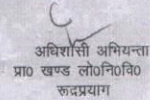 अधिशासी अभियन्ता
प्रा० खण्ड लो०नि०वि०
रूदप्रयाग